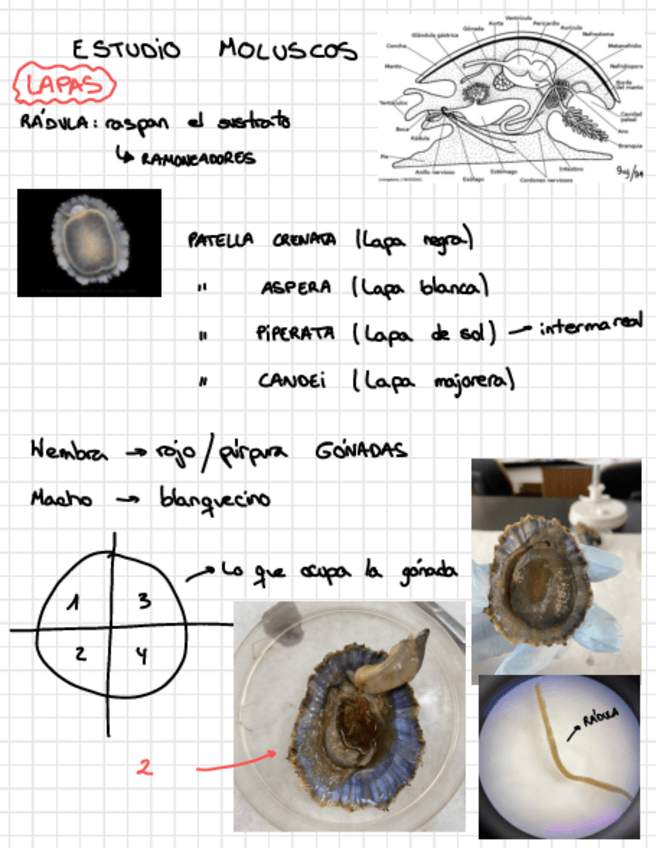 ESTUDIO MOLUSCOS
LAPAS
RÁDULA: raspan el sustrato
↳ RAMONEADORES
Ventrículo
Aorta
Pericardio
Gónada
Aurícula
Glándula gástrica
Nefrostoma
Concha
Metanefridio
Manto
Nefridioporo
Borde del manto
Tentáculos
Cavidad paleal
Boca
Rádula
Ano
Branquia
Pie
Anillo nervioso
Estómago
Intestino
Esófago
Cordones nerviosos
PATELLA CRENATA (Lapa negra)
" ASPERA (Lapa blanca)
" PIPERATA (Lapa de sol) → intermareal
" CANDEI (Lapa majorera)
Hembra → rojo/púrpura GÓNADAS
Macho → blanquecino
1 3
2 4
→ Lo que ocupa la gónada
2 →
RÁDULA